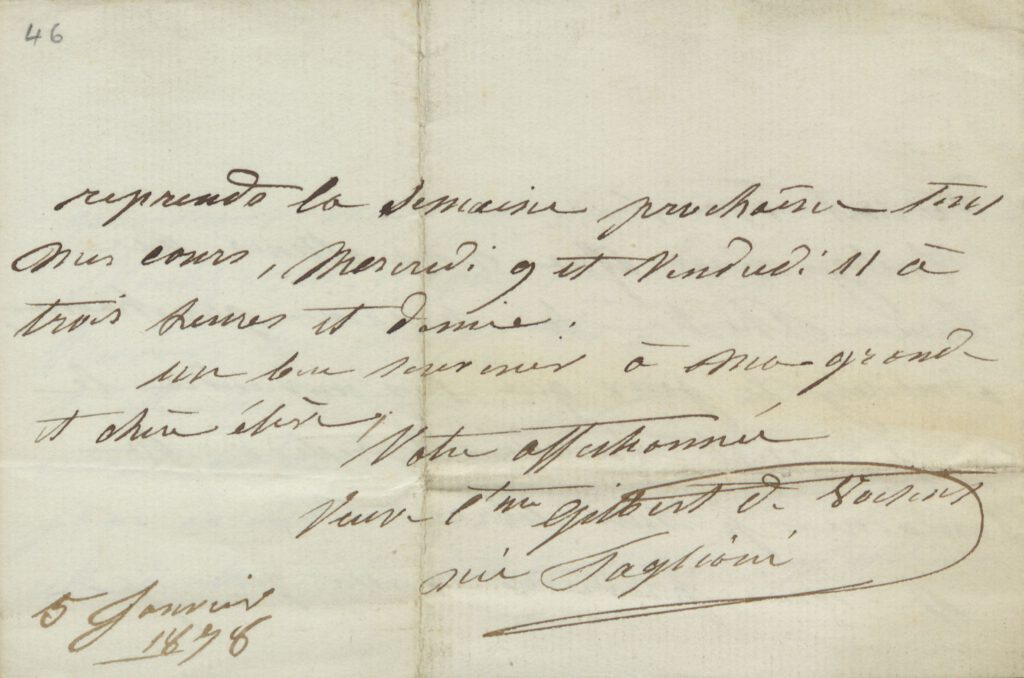 46
reprends la semaine prochaine tous
mes cours, Mercredi 9 et Vendredi 11 à
trois heures et demie.
un bon souvenir à ma grande
et chère élève,
Votre affectionnée
Veuve Ctesse Gilbert de Voisins
née Taglioni
5 Janvier
1878